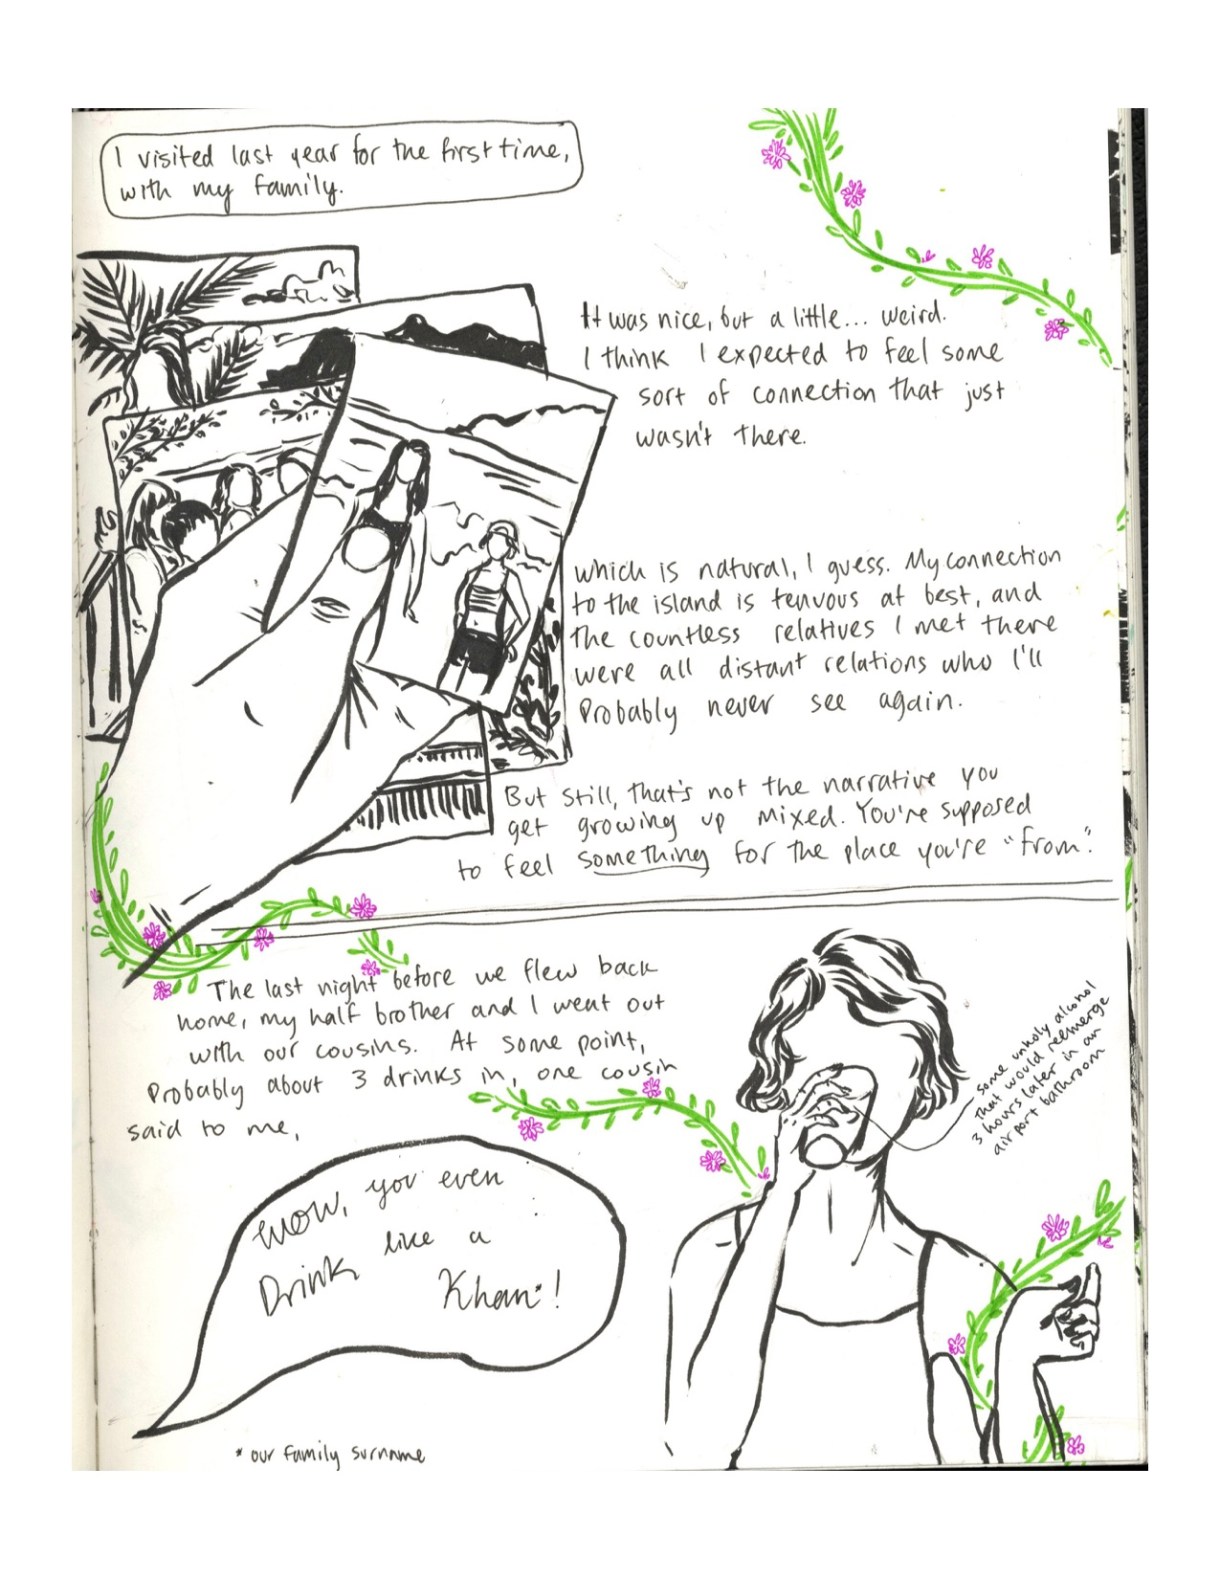 I visited last year for the first time,
with my family.
It was nice, but a little... weird.
I think I expected to feel some
sort of connection that just
wasn't there.
which is natural, I guess. My connection
to the island is tenuous at best, and
the countless relatives I met there
were all distant relations who I'll
probably never see again.
But still, that's not the narrative you
get growing up mixed. You're supposed
to feel something for the place you're "from".
The last night before we flew back
home, my half brother and I went out
with our cousins. At some point,
probably about 3 drinks in, one cousin
said to me,
some unholy alcohol
that would reemerge
3 hours later in an
airport bathroom
wow, you even
Drink like a
Khan*!
* our family surname